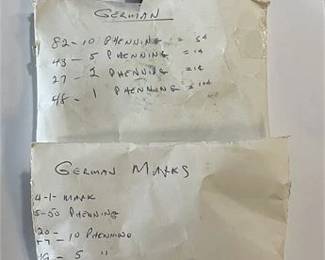 GERMAN
82-10 PHENNING = 5¢
43-5 PHENNING = 1¢
27-2 PHENNING = 1¢
48-1 PHENNING =
GERMAN MARKS
4-1-MARK
5-50 PHENNING
20-
10 PHENNING
5 "